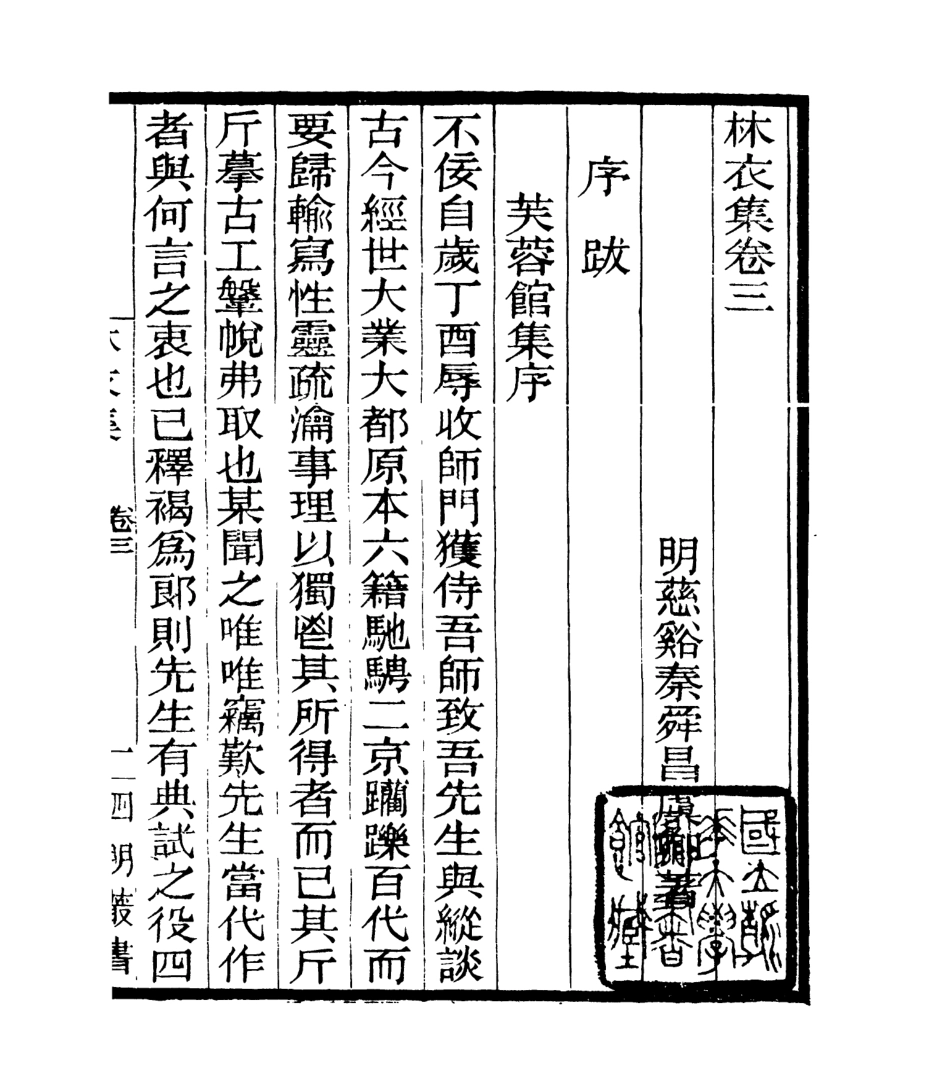 林衣集卷三
明慈谿秦舜昌虞卿著
序跋
芙蓉館集序
不佞自歲丁酉辱收師門獲侍吾師致吾先生與縱談
古今經世大業大都原本六籍馳騁二京躪躒百代而
要歸輸寫性靈疏瀹事理以獨鬯其所得者而已其斤
斤摹古工鞶帨弗取也某聞之唯唯竊歎先生當代作
者與何言之衷也已釋褐爲郎則先生有典試之役四
卷三
一
四明叢書